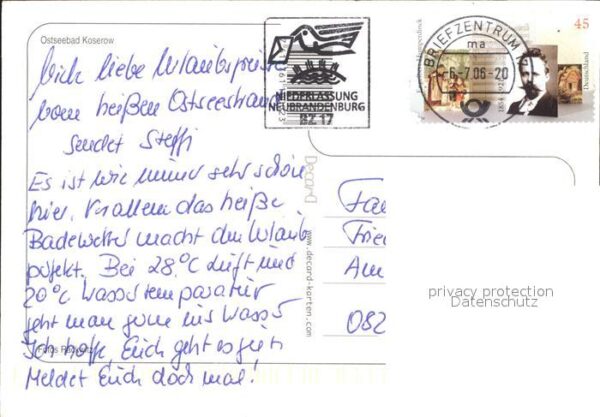 Ostseebad Koserow
Viele liebe Urlaubsgrüsse
vom heißen Ostseestrand
sendet Steffi
Es ist wie immer sehr schön
hier. Vor allem das heiße
Badewetter macht den Urlaub
perfekt. Bei 28°C Luft und
20°C Wassertemperatur
geht man gerne ins Wasser
Ich hoffe, Euch geht es gut
Meldet Euch doch mal!
NIEDERLASSUNG
NEUBRANDENBURG
BZ 17
BRIEFZENTRUM 17
ma
-6.-7.06-20
45
Deutschland
Decard
www.decard-karten.com
Am
082
privacy protection
Datenschutz